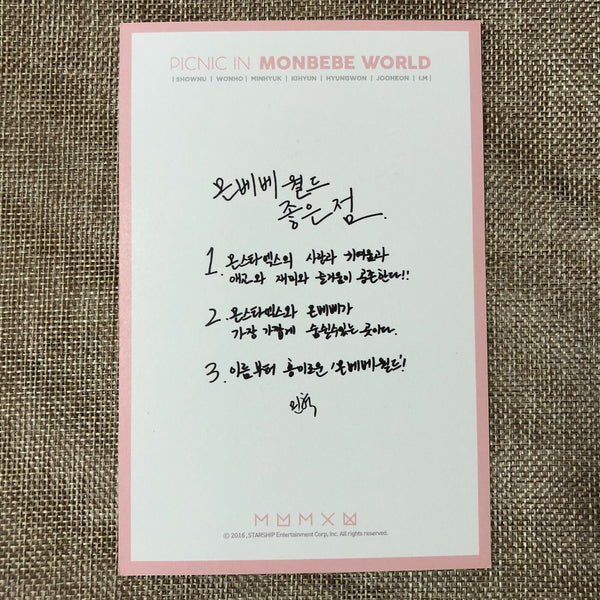 PICNIC IN MONBEBE WORLD
| SHOWNU | WONHO | MINHYUK | KIHYUN | HYUNGWON | JOOHEON | I.M |
몬베베 월드
좋은점.
1. 몬스타엑스의 사랑과 귀여움과
애교와 재미와 즐거움이 공존한다!!
2. 몬스타엑스와 몬베베가
가장 가깝게 숨쉴수있는 곳이다.
3. 이름부터 흥미로운 '몬베베월드'!
민혁
© 2016 ,STARSHIP Entertainment Corp, Inc. All rights reserved.